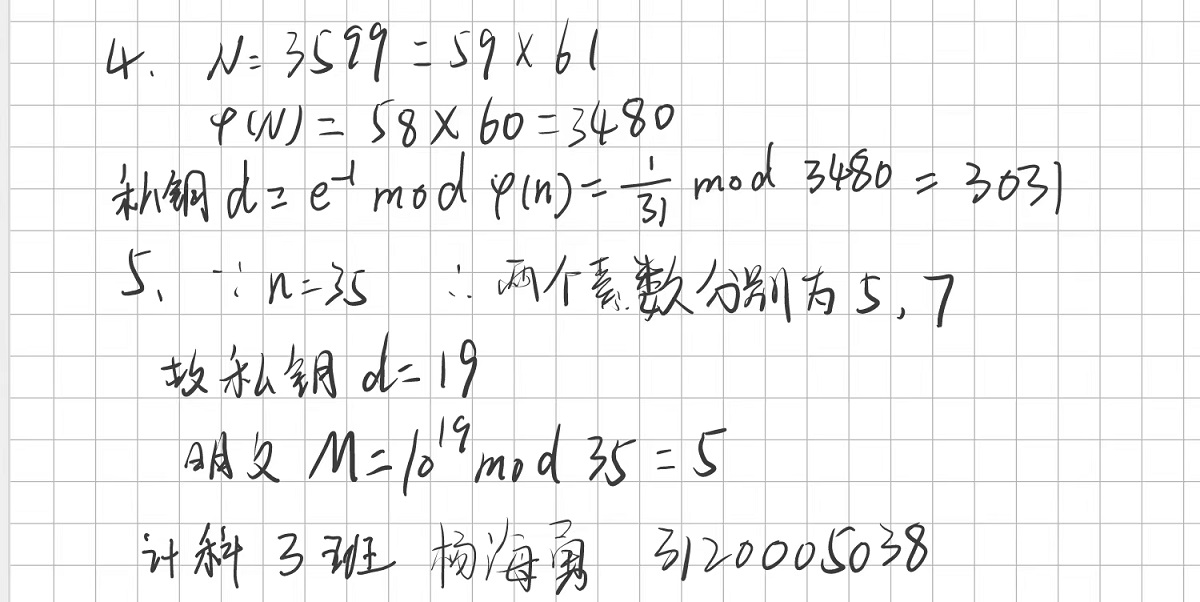 4. N=3599=59×61
φ(N)=58×60=3480
私钥d=e⁻¹ mod φ(n)=1/31 mod 3480=3031
5、∵n=35 ∴两个素数分别为5,7
故私钥d=19
明文M=10¹⁹mod 35=5
计科3班 杨海勇 3120005038